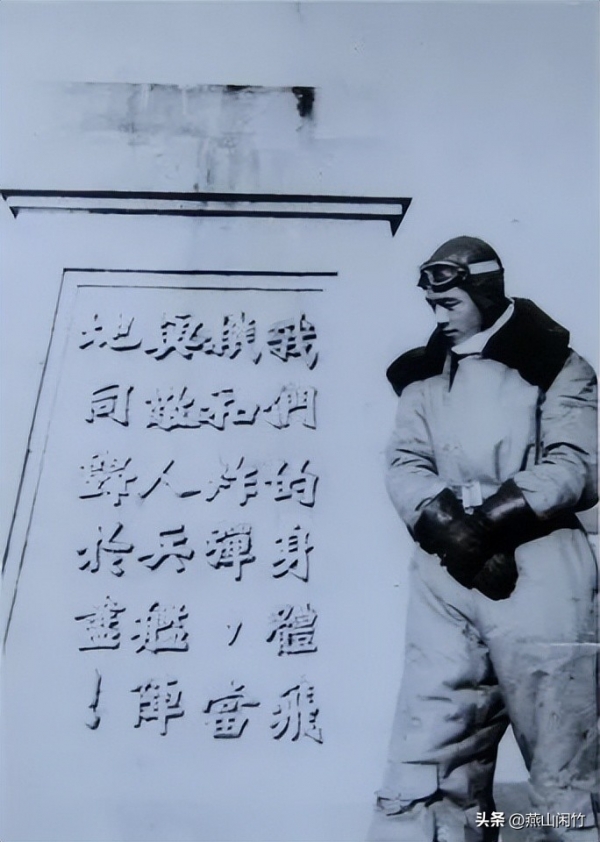 我們的身體飛
機和炸彈，當
與敵人兵艦陣
地同歸於盡！
头条 @燕山闲竹